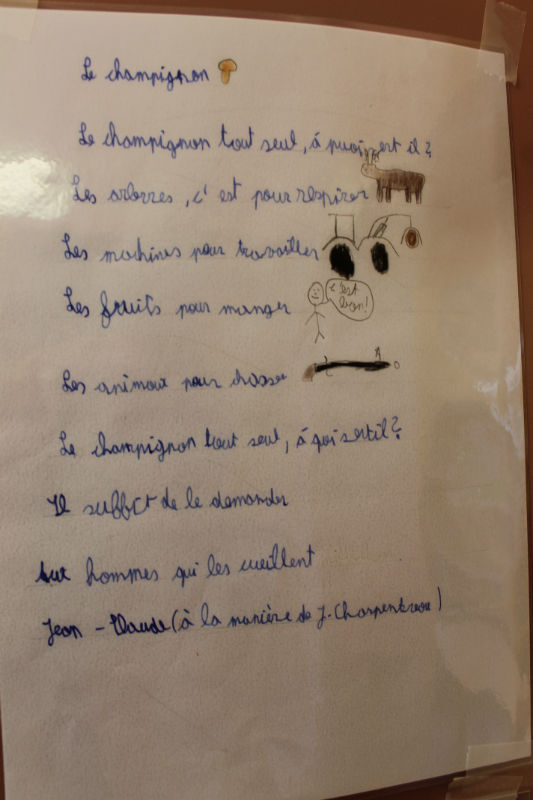 Le champignon
Le champignon tout seul, à quoi sert il ?
Les arbres, c'est pour respirer
Les machines pour travailler
Les fruits pour manger
c'est bon!
Les animaux pour chasser
Le champignon tout seul, à qoi sertil?
Il suffit de le demander
Aux hommes qui les cueillent
Jean - Claude (à la manière de J. Charpentreau)